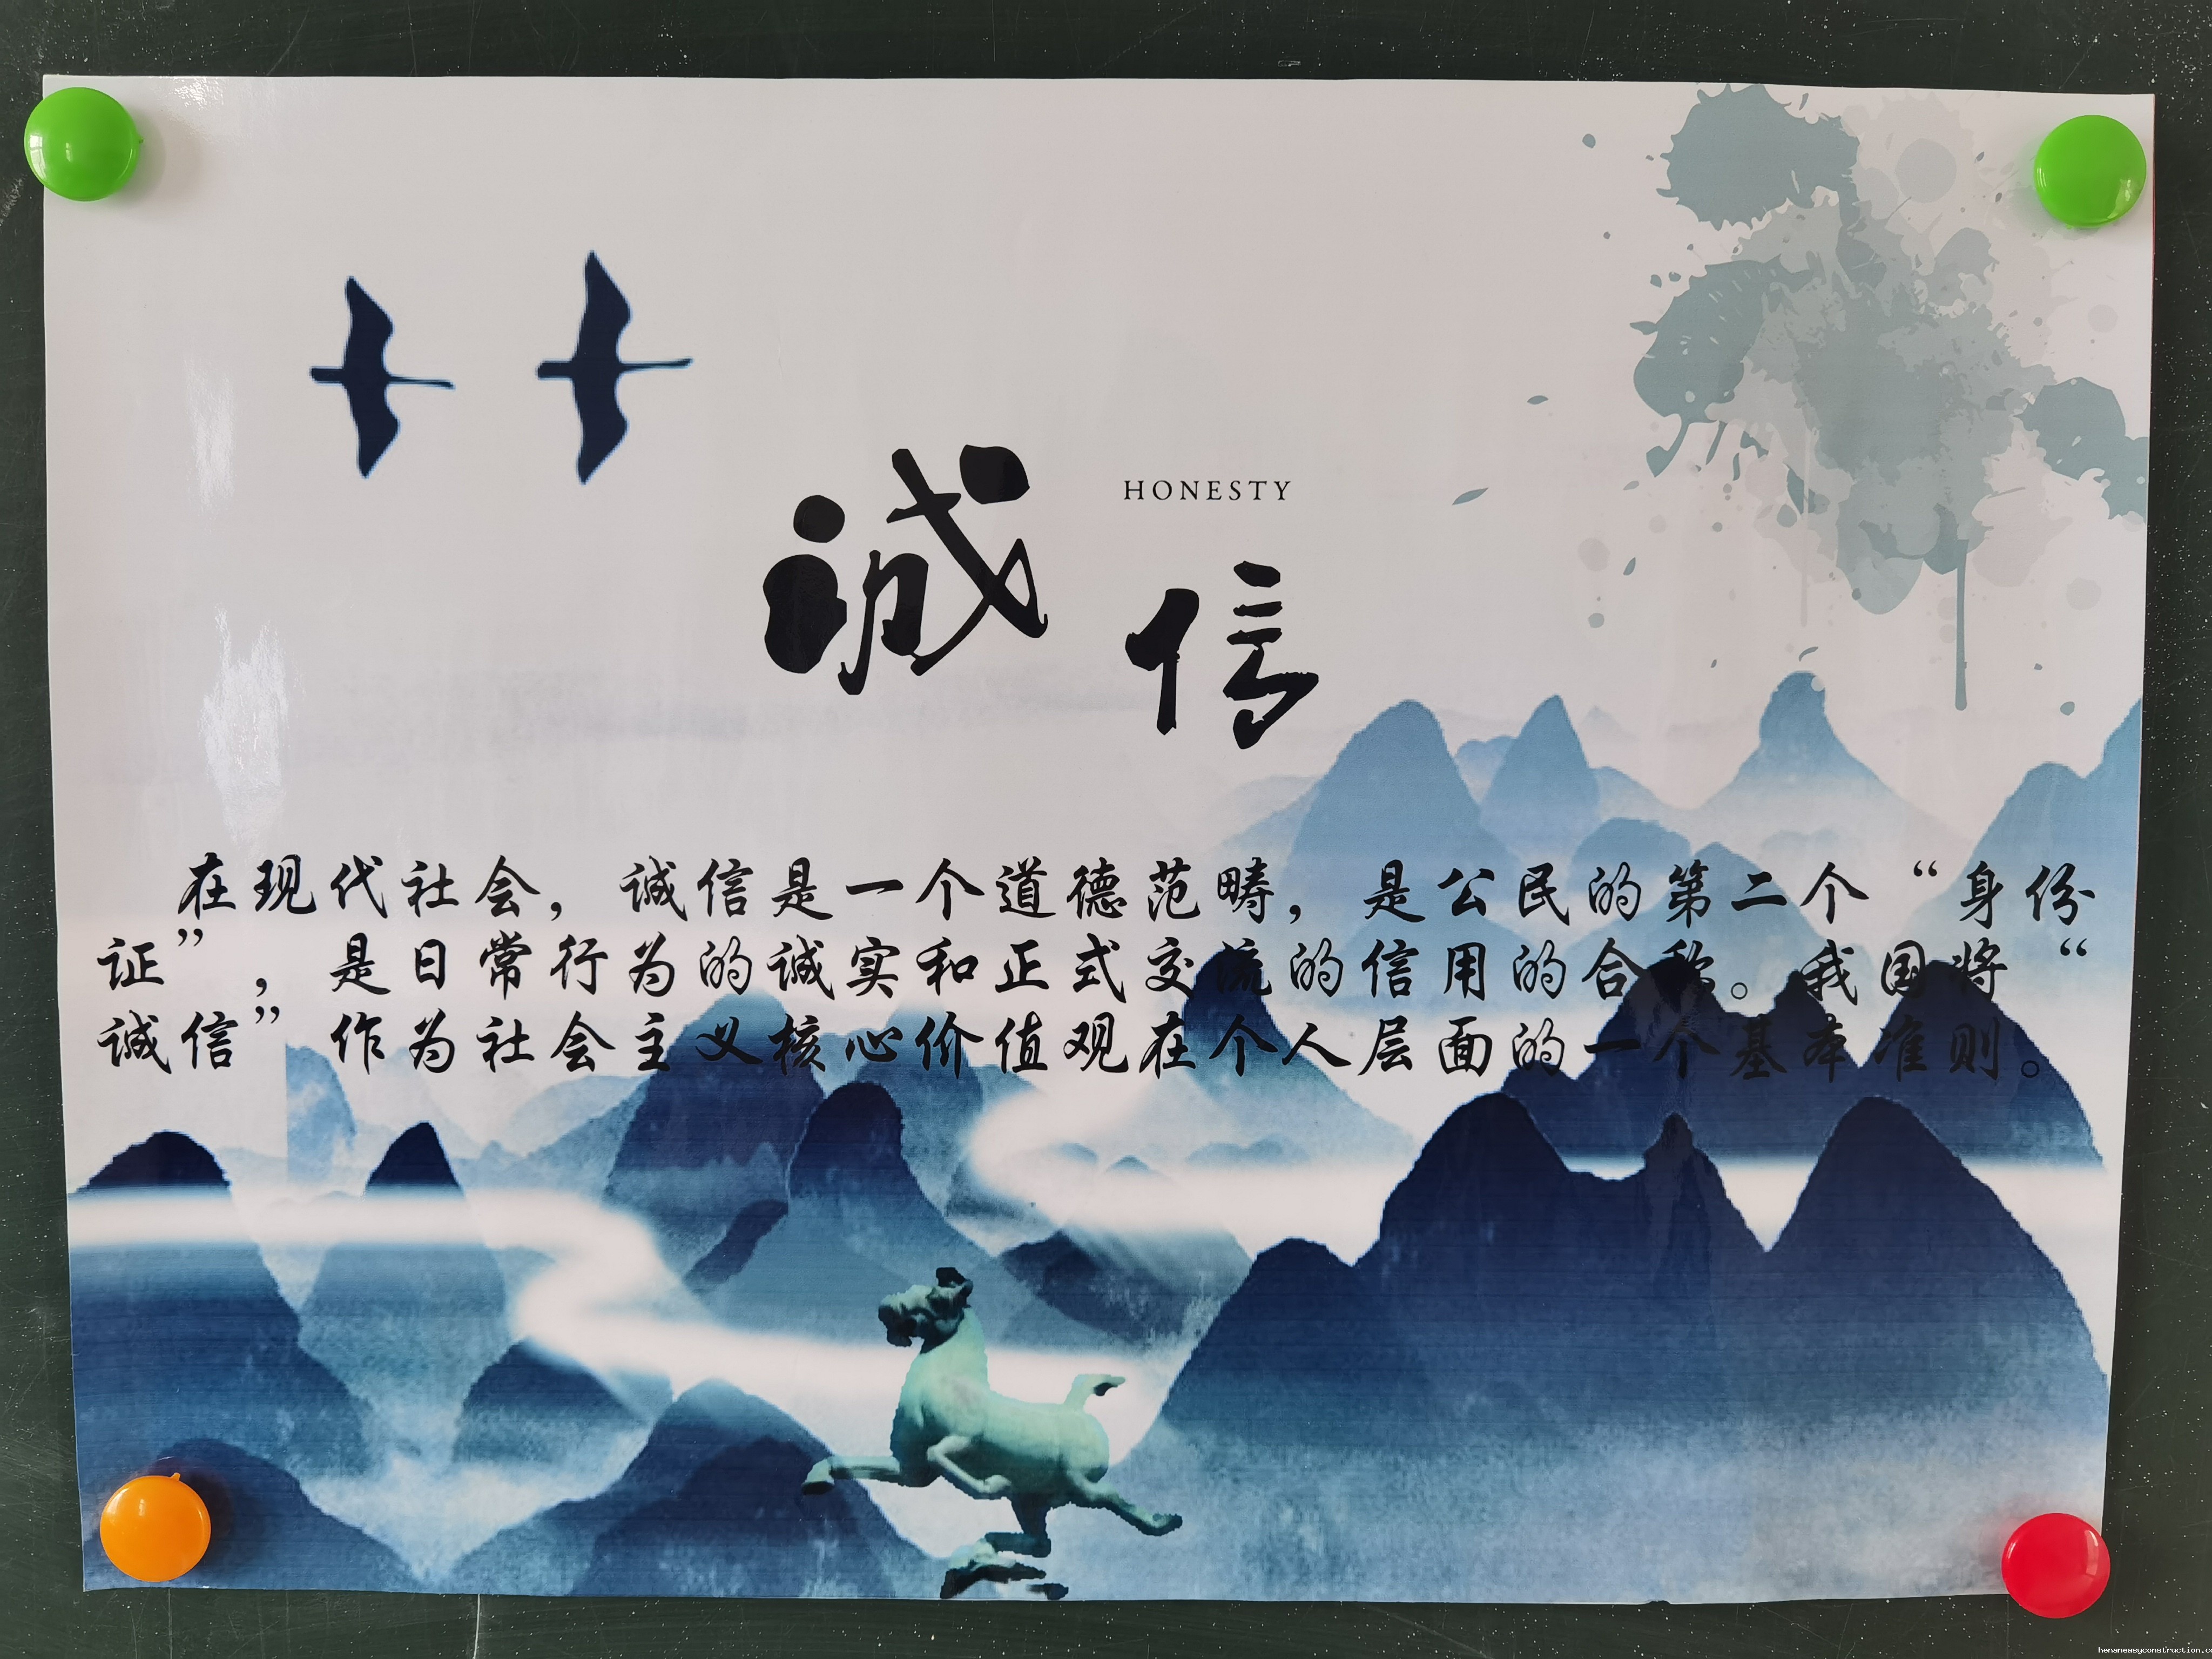 HONESTY
诚信
在现代社会，诚信是一个道德范畴，是公民的第二个“身份
证”，是日常行为的诚实和正式交流的信用的合称。我国将“
诚信”作为社会主义核心价值观在个人层面的一个基本准则。
henaneasyconstruction.co